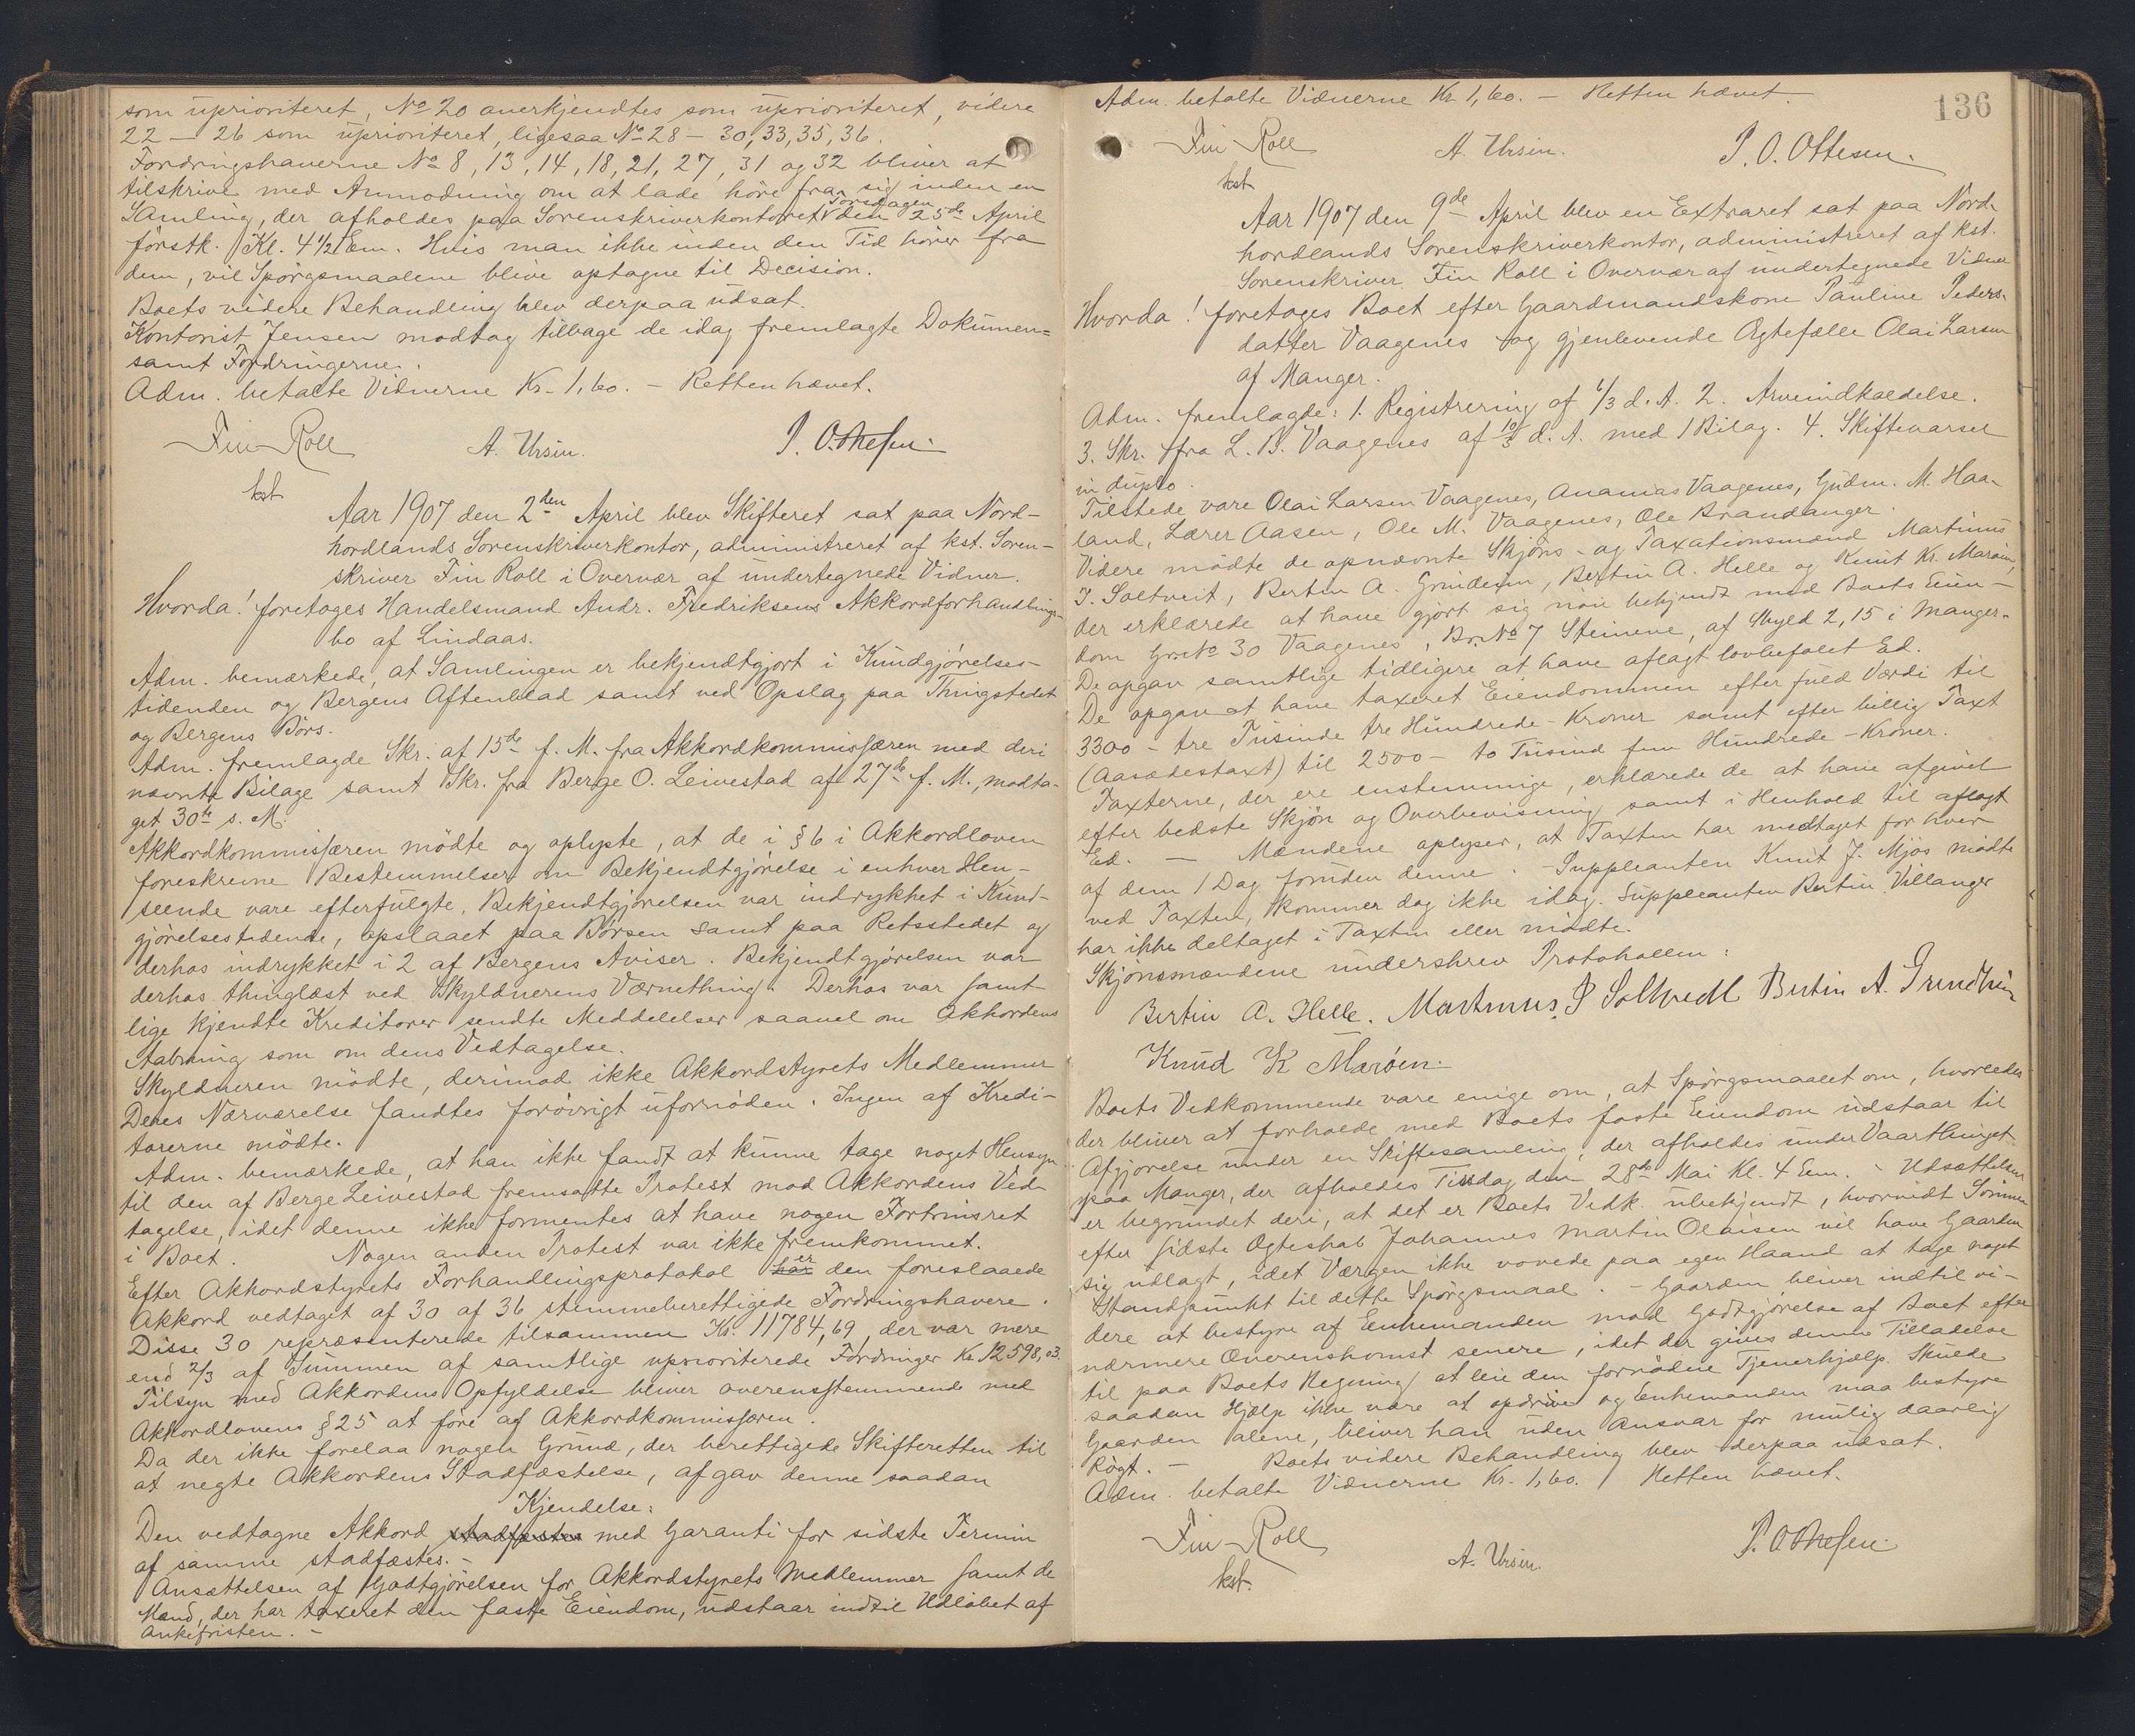 som uprioriteret, No 20 anerkjendtes som uprioriteret, videre
22 – 26 som uprioriteret, ligesaa No 28 – 30, 33, 35, 36.
Fordringshaverne No 8, 13, 14, 18, 21, 27, 31 og 32 bliver at
tilskrive med Anmodning om at lade høre fra sig inden en
Samling, der afholdes paa Sorenskriverkontoret Torsdagen den 25de April
førstk. Kl. 4 1/2 Em. Hvis man ikke inden den Tid hører fra
dem, vil Spørgsmaalene blive optagne til Decision.
Boets videre Behandling blev derpaa udsat.
Kontorist Jensen modtog tilbage de idag fremlagte Dokumen=
samt Fordringerne.
Adm. betalte Vidnerne Kr. 1,60. – Retten hævet.
Fin Roll
A. Ursin.
P. Ottesen.
kst.
Aar 1907 den 2den April blev Skifteret sat paa Nord-
hordlands Sorenskriverkontor, administreret af kst. Soren-
skriver Fin Roll i Overvær af undertegnede Vidner.
Hvorda! foretoges Handelsmand Andr. Fredriksens Akkordforhandlings-
bo af Lindaas.
Adm. bemærkede, at Samlingen er bekjendtgjort i Kundgjørelses-
tidenden og Bergens Aftenblad samt ved Opslag paa Thingstedet
og Bergens Børs.
Adm. fremlagde Skr. af 15de f. M. fra Akkordkommissæren med deri
nævnte Bilage samt Skr. fra Berge O. Leivestad af 27de f. M., modta-
get 30te s. M.
Akkordkommissæren mødte og oplyste, at de i § 6 i Akkordloven
foreskrevne Bestemmelser om Bekjendtgjørelse i enhver Hen-
seende vare efterfulgte. Bekjendtgjørelsen var indrykket i Kund-
gjørelsestidende, opslaaet paa Børsen samt paa Retsstedet og
derhos indrykket i 2 af Bergens Aviser. Bekjendtgjørelsen var
derhos thinglæst ved Skyldnerens Værnething. Derhos var samt
lige kjendte Kreditorer sendte Meddelelser saavel om Akkordens
Aabning som om dens Vedtagelse.
Skyldneren mødte, derimod ikke Akkordstyrets Medlemmer
Deres Nærværelse fandtes forøvrigt ufornøden. Ingen af Kredi-
torerne mødte.
Adm. bemærkede, at han ikke fandt at kunne tage noget Hensyn
til den af Berge Leivestad fremsatte Protest mod Akkordens Ved-
tagelse, idet denne ikke formentes at have nogen Fortrinsret
i Boet. Nogen anden Protest var ikke fremkommet.
Efter Akkordstyrets Forhandlingsprotokol har er den foreslaaede
Akkord vedtaget af 30 af 36 stemmeberettigede Fordringshavere.
Disse 30 repræsenterede tilsammen Kr. 11784,69, der var mere
end 2/3 af Summen af samtlige uprioriterede Fordringer Kr. 12598,03.
Tilsyn med Akkordens Opfyldelse bliver overensstemmende med
Akkordlovens § 25 at føre af Akkordkommissæren.
Da der ikke forelaa nogen Grund, der berettigede Skifteretten til
at negte Akkordens Stadfæstelse, afgav denne saadan
Kjendelse:
Den vedtagne Akkord stadfæstes med Garanti for sidste Termin
af samme stadfæstes. –
Ansættelsen af Godtgjørelsen for Akkordstyrets Medlemmer samt de
Mænd, der har taxeret den faste Eiendom, udstaar indtil Udløbet af
Ankefristen. –
136
Adm. betalte Vidnerne Kr. 1,60. – Retten hævet.
Fin Roll
A. Ursin.
P. O. Ottesen.
kst.
Aar 1907 den 9de April blev en Extraret sat paa Nord-
hordlands Sorenskriverkontor, administreret af kst.
Sorenskriver Fin Roll i Overvær af undertegnede Vidner
Hvorda! foretoges Boet efter Gaardmandskone Pauline Peders-
datter Vaagenes og gjenlevende Ægtefælle Olai Larsen
af Manger.
Adm. fremlagde: 1. Registrering af 6/3 d. A. 2. Arveindkaldelse.
3. Skr. fra L. B. Vaagenes af 10/3 d. A. med 1 Bilag. 4. Skiftevarsel
in duplo.
Tilstede vare Olai Larsen Vaagenes, Ananias Vaagenes, Gudm. M. Haa-
land, Lærer Aasen, Ole M. Vaagenes, Ole Brandanger.
Videre mødte de opnævnte Skjøns- og Taxationsmænd Martinus
J. Soltveit, Bertin A. Grindeim, Bertin A. Helle og Knut Kr. Marøen,
der erklærede at have gjort sig nøie bekjendt med Boets Eien-
dom Gr. No 30 Vaagenes, Br. No 7 Steinene, af Skyld 2,15 i Manger.
De opgav samtlige tidligere at have aflagt lovbefalet Ed.
De opgav at have taxeret Eiendommen efter fuld Værdi til
3300 – tre Tusinde tre Hundrede – Kroner samt efter billig Taxt
(Aasædestaxt) til 2500 – to Tusind fem Hundrede – Kroner.
Taxterne, der ere enstemmige, erklærede de at have afgivet
efter bedste Skjøn og Overbevisning samt i Henhold til aflagt
Ed. – Mændene oplyser, at Taxten har medtaget for hver
af dem 1 Dag foruden denne. – Suppleanten Knut J. Mjøs mødte
ved Taxten, kommer dog ikke idag. Suppleanten Bertin Villanger
har ikke deltaget i Taxten eller mødte.
Skjønsmændene underskrev Protokollen:
Bertin A. Helle. Martinus J Soltvedt Bertin A. Grindheim
Knud K Marøen.
Boets Vedkommende vare enige om, at Spørgsmaalet om, hvorledes
der bliver at forholde med Boets faste Eiendom udstaar til
Afgjørelse under en Skiftesamling, der afholdes under Vaarthinget
paa Manger, der afholdes Tirsdag den 28de Mai Kl. 4 Em. – Udsættelsen
er begrundet deri, at det er Boets Vedk. ubekjendt, hvorvidt Sønnen
efter sidste Ægteskab Johannes Martin Olaisen vil have Gaarden
sig udlagt, idet Værgen ikke vovede paa egen Haand at tage noget
Standpunkt til dette Spørgsmaal. – Gaarden bliver indtil vi-
dere at bestyre af Enkemanden mod Godtgjørelse af Boet efter
nærmere Overenskomst senere, idet der gives denne Tilladelse
til paa Boets Regning at leie den fornødne Tjenerhjælp. Skulde
saadan Hjælp ikke være at opdrive og Enkemanden maa bestyre
Gaarden alene, bliver han uden Ansvar for mulig daarlig
Røgt. – Boets videre Behandling blev derpaa udsat.
Adm. betalte Vidnerne Kr. 1,60. / Retten hævet.
Fin Roll
A. Ursin.
P. Ottesen.
kst.